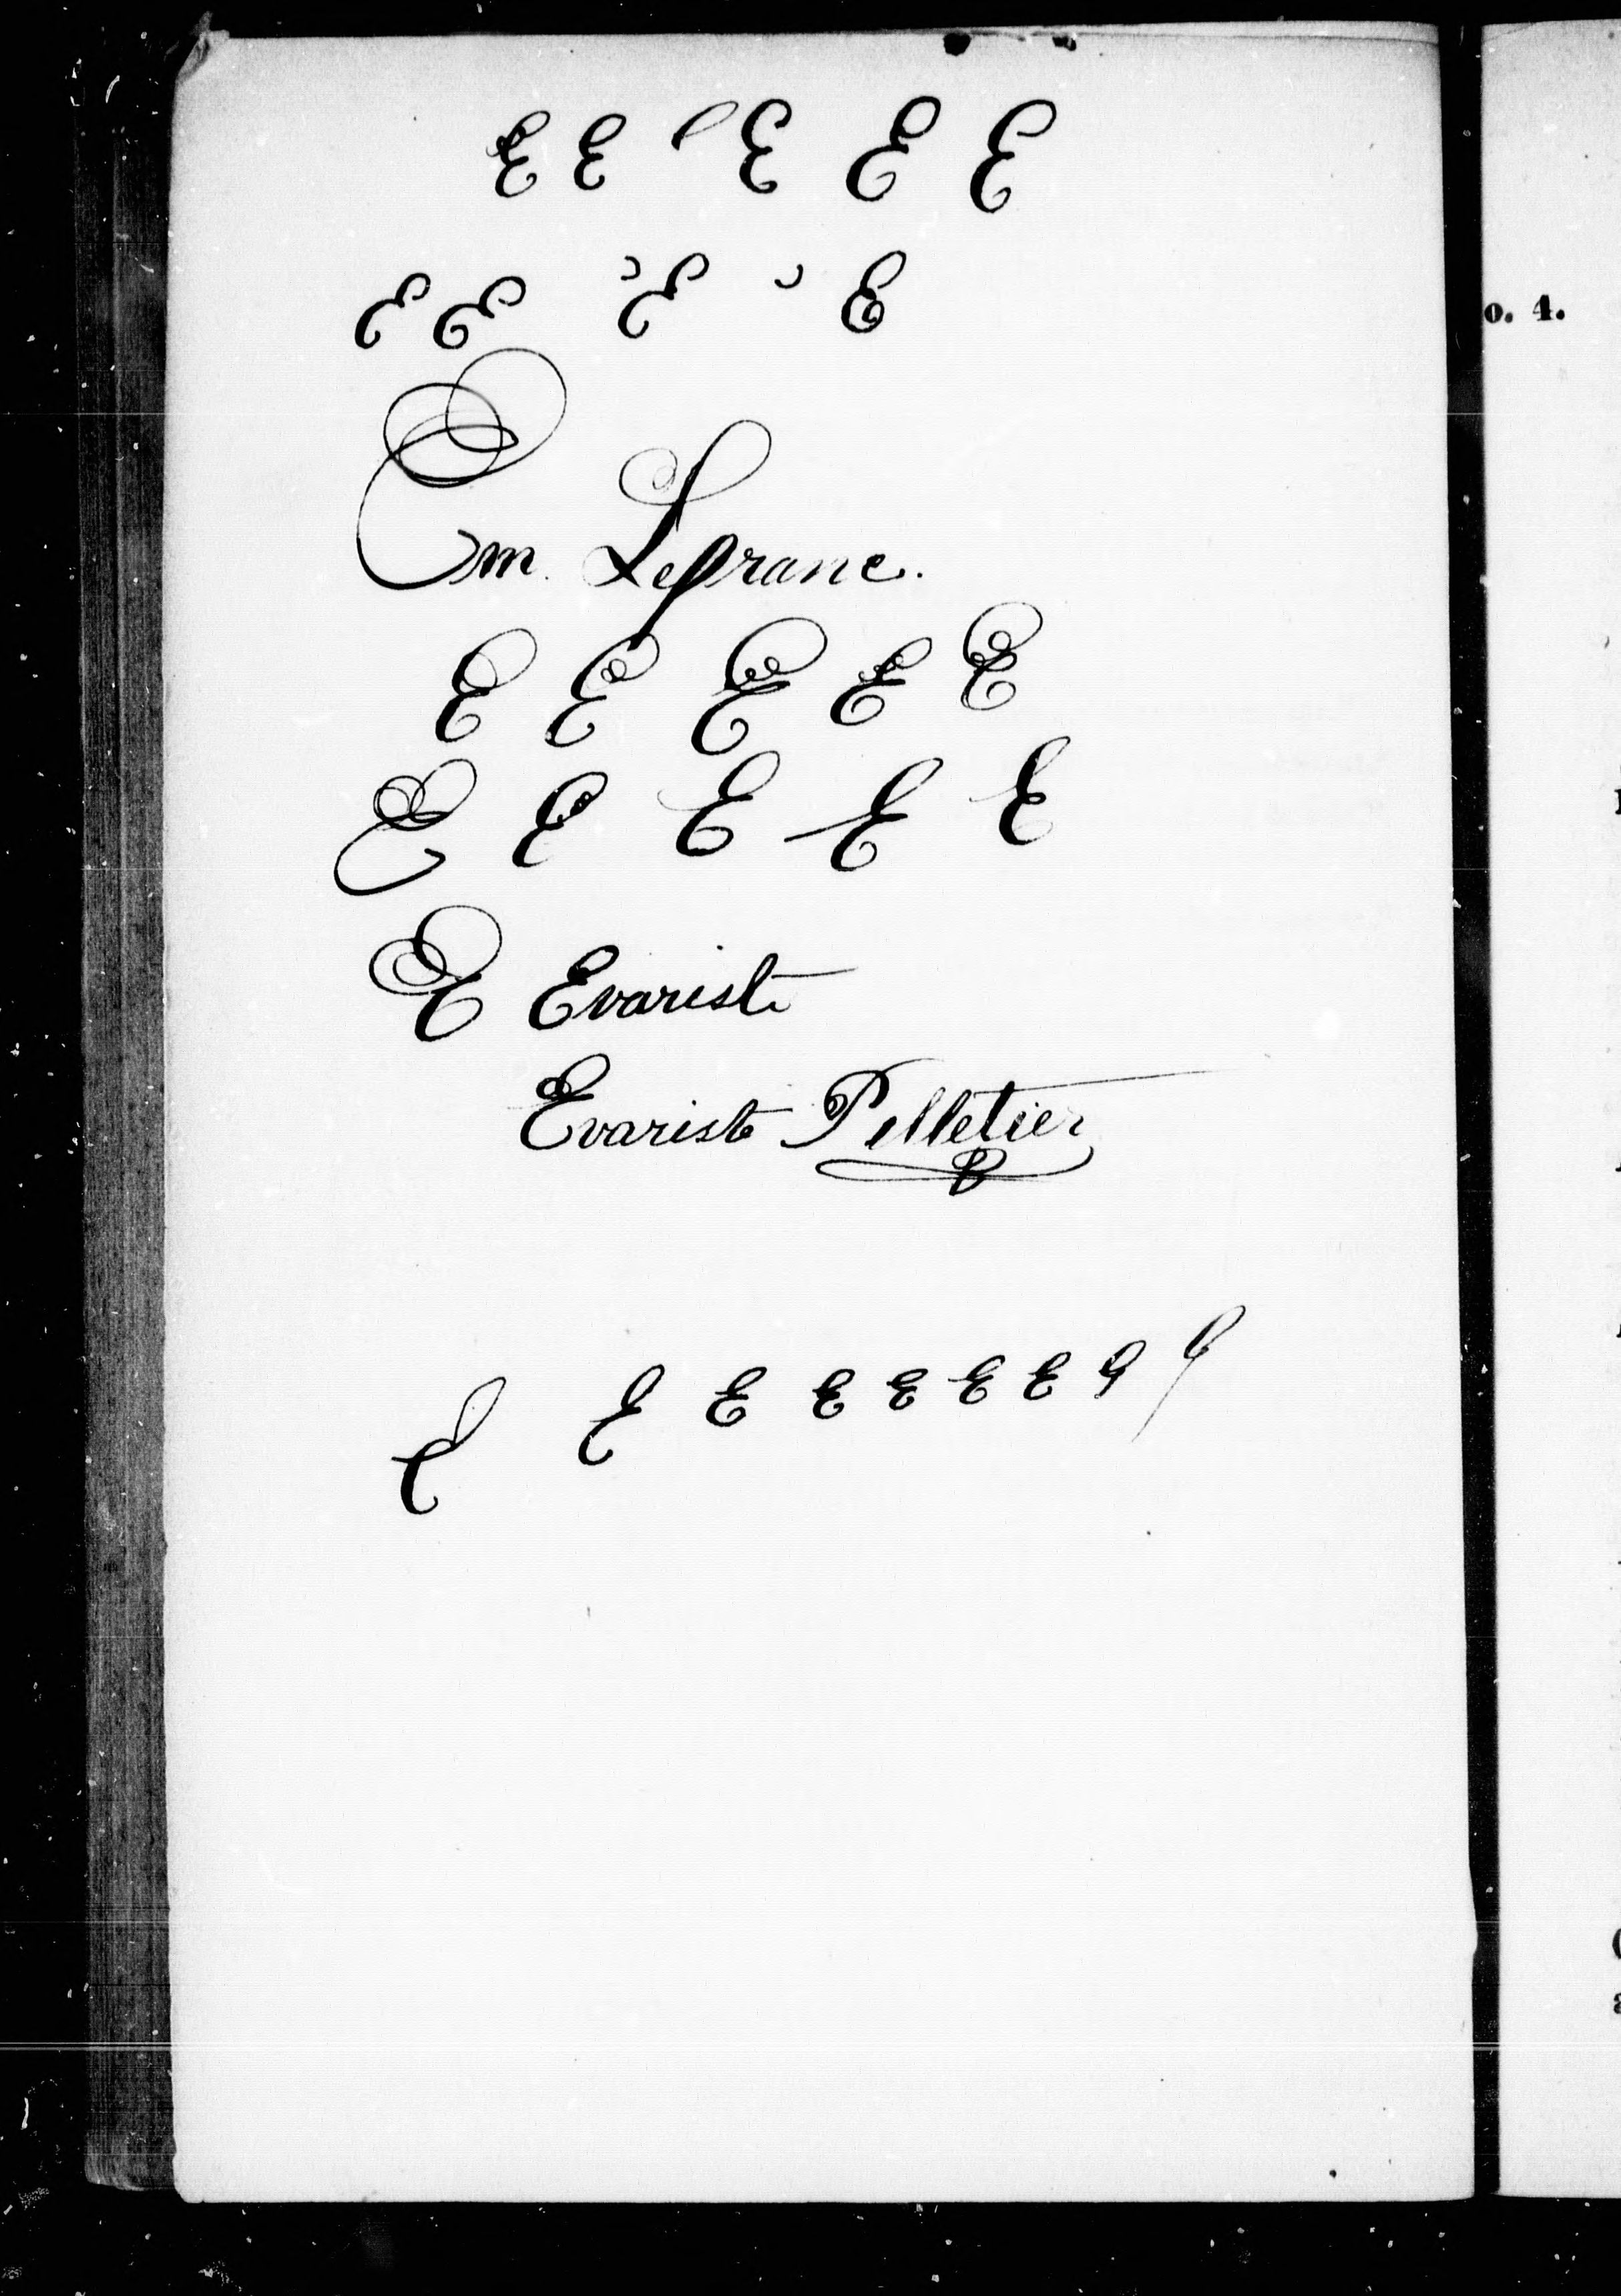 E E E E E
E E E E
Em. Lefranc.
E E E E E
E E E E E
E Evariste
Evariste Pelletier
E E E E E E E
o. 4.